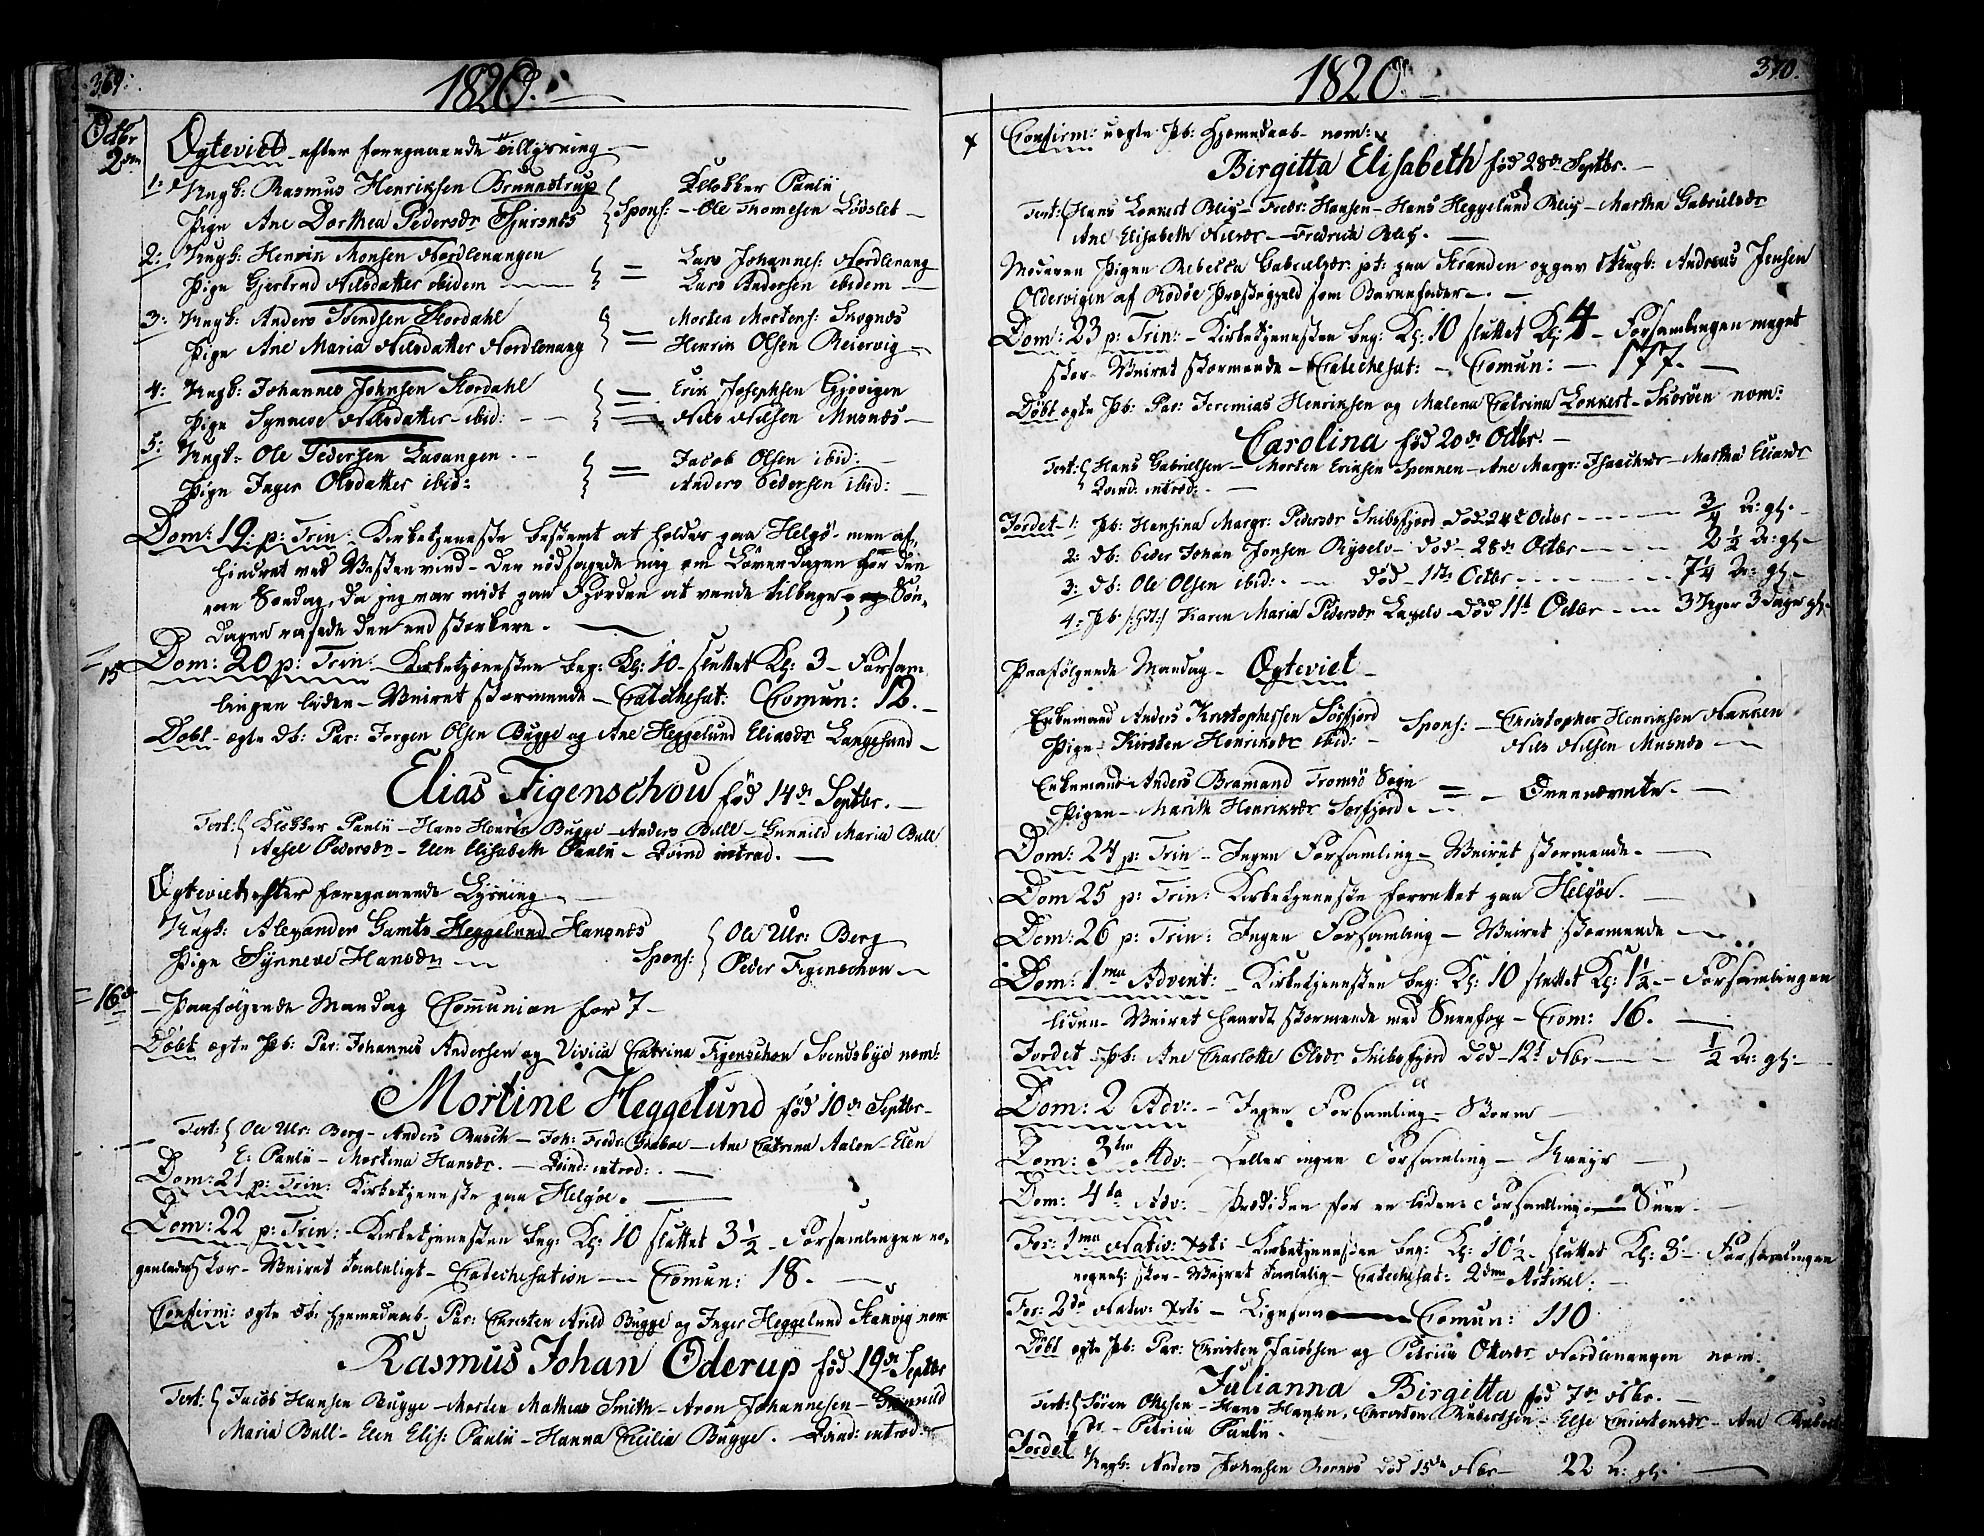 369.
1820.
Octbr
2den
Ægteviet efter foregaaende Tillysning
1: Ungk: Rasmus Henriksen Brunnstrup
Pige Ane Dorthea Pedersdr Spirsnes
Spons: Klokker Pauli
Ole Thomesen Lövslet
2: Ungk: Henrik Monsen Nordlenangen
Pige Gjertrud Nilsdatter ibidem
= Lars Johannes: Nordlenang
Lars Andersen ibidem
3: Ungk: Anders Svendsen Stordahl
Pige Ane Maria Nilsdatter Nordlenang
= Morten Mortens: Skognæs
Henrik Olsen Reiervig
4: Ungk: Johannes Johnsen Stordahl
Pige Synneve Nilsdatter ibid:
= Erik Josephsen Gjövigen
= Nils Nilsen Musnæs
5: Ungk: Ole Pedersen Qvangen
Pige Inger Olsdatter ibid:
= Jacob Olsen ibid:
Anders Pedersen ibid:
Dom: 19. p: Trin: Kirketjeneste bestemt at holdes paa Helgö men af-
hindret ved Vestenvind - den nödsagede mig om Löverdagen för den
Söndag, da jeg var midt paa Fjorden at vende tilbage, og Sön-
dagen rasede den end sterkere.
15 Dom: 20 p: Trin: Kirketjenesten beg: Kl: 10 sluttet Kl: 3 - Forsam
lingen liden - Veiret stormende - Catechesat: Comun: 12.
Döbt ægte Db: Par: Jörgen Olsen Bugge og Ane Heggelund Eliasdr Langesund
Elias Figenschou föd 14de Septbr.
Test: Klokker Pauli - Hans Henrik Bugge - Anders Bull - Gunnild Maria Bull
Axsel Pedersdr - Elen Elisabeth Pauli - Qvind introd.
Ægteviet efter foregaaende Lysning
Ungk: Alexander Gamts Heggelund Hansnes
Pige Synneve Hansdr
Spons: Ole Ulr: Berg
Peder Figenschou
16de Paafölgende Mandag Comunion for 7
Döbt ægte Pb: Par: Johannes Andersen og Vivica Catrina Figenschou Svendsbye nom:
Mortine Heggelund föd 10de Septbr
Test: Ole Ulr: Berg - Anders Rasch - Joh: Fredr: Graboe - Ane Catrina Aalen - Elen
E: Pauli - Mortina Hansdr. - Qvind: introd:
Dom: 21 p: Trin: Kirketjeneste paa Helgöe.
Dom: 22 p: Trin: Kirketjenesten beg: Kl: 10 sluttet 3½ - Forsamlingen no-
genledes stor - Veiret taaleligt - Catechesation - Comun: 18.
Confirm: ægte Db: hjemedaab Par: Christen Arild Bugge og Inger Heggelund Skanvig nom
Rasmus Johan Oderup föd 19de Septbr
Test: Jacob Hansen Bugge - Morten Mathias Smith - Aron Johannesen - Gunnild
Maria Bull - Elen Elis: Pauli - Hanna Cecilia Bugge. Qvind: introd:
370.
1820.
Confirm: uægte Pb: Hjemedaab nom:
Birgitta Elisabeth föd 28de Septbr.
Test: Hans Lonkert Bleig - Fredr: Hansen - Hans Heggelund Bleig - Martha Gabrielsdr
Ane Elisabeth Nilsdr - Fredrica Bleig.
Moderen Pigen Rebecca Gabrielsdr pt: paa Stranden opgav Ungk: Andreas Jensen
Oldervigen af Rodöe Præstegjeld som Barnefader.
Dom: 23 p: Trin: Kirketjenesten beg: Kl: 10 sluttet Kl: 4 - Forsamlingen meget
stor - Veiret stormende - Catechesat: - Comun: 177.
Döbt ægte Pb: Par: Jeremias Henriksen og Malena Catrina Lonkert Skoröen nom:
Carolina föd 20de Octbr.
Test: Hans Gabrielsen - Morten Eriksen Spennen - Ane Margr: Isaachsdr - Martha Eliasdr
Qvind: introd:
Jordet 1: Pb: Hansina Margr: Pedersdr Snibsfjord död 24de Octbr ¾ Ar: gl:
2: Db: Peder Johan Jonsen Ryselv - död 28de Octbr 2½ Ar: gl:
3: Db: Ole Olsen ibid: död 1ste Octbr 7¼ Ar: gl:
4: Pb: Karen Maria Pedersdr Laxelv död 11te Octbr 3 Uger 3 Dage gl:
Paafölgende Mandag - Ægteviet
Enkemand Anders Kristophersen Sörfjord
Pige Kirsten Henriksdr ibid:
Spons: Christopher Henriksen Nakken
Nils Nilsen Musnæs
Enkemand Anders Bramand Tromsö Sogn
Pigen Marith Henriksdr Sörfjord
= Ovennævnte.
Dom: 24 p: Trin - Ingen Forsamling - Veiret stormende.
Dom 25 p: Trin: Kirketjeneste forrettet paa Helgöe.
Dom: 26 p: Trin: Ingen Forsamling - Veiret stormende
Dom: 1ma Advent: Kirketjenesten beg: Kl: 10 sluttet Kl: 1½ - Forsamlingen
liden - Veiret haardt stormende med Sneefog - Com: 16.
Jordet Pb: Ane Charlotte Olsdr Snibsfjord död 12t Nbr ½ Ar: gl:
Dom: 2 Adv: - Ingen Forsamling - Storm
Dom: 3tia Adv: heller ingen Forsamling -
Dom: 4ta Adv: Prædiken for en liden Forsamling - Snee.
Fer: 1ma Nativ: Xsti - Kirketjenesten beg: Kl: 10½ sluttet Kl: 3 - Forsamlingen
nogenl: stor - Veiret taalelig - Catechesat: 2den Artikel:
Fer: 2da Nativ: Xsti - Ligesom Comun: 110
Döbt ægte Pb: Par: Christen Jacobsen og Petrica Ottesdr Nordlenangen nom:
Julianna Birgitta föd 7de Nbr.
Test: Sören Ottesen - Hans Hansen, Christen Rubertsen - Else Christensdr - Ane Ruberts
dr - Petrica Pauli.
Jordet
Ungk: Anders Johnsen död 15de Nbr 22 Ar: gl: